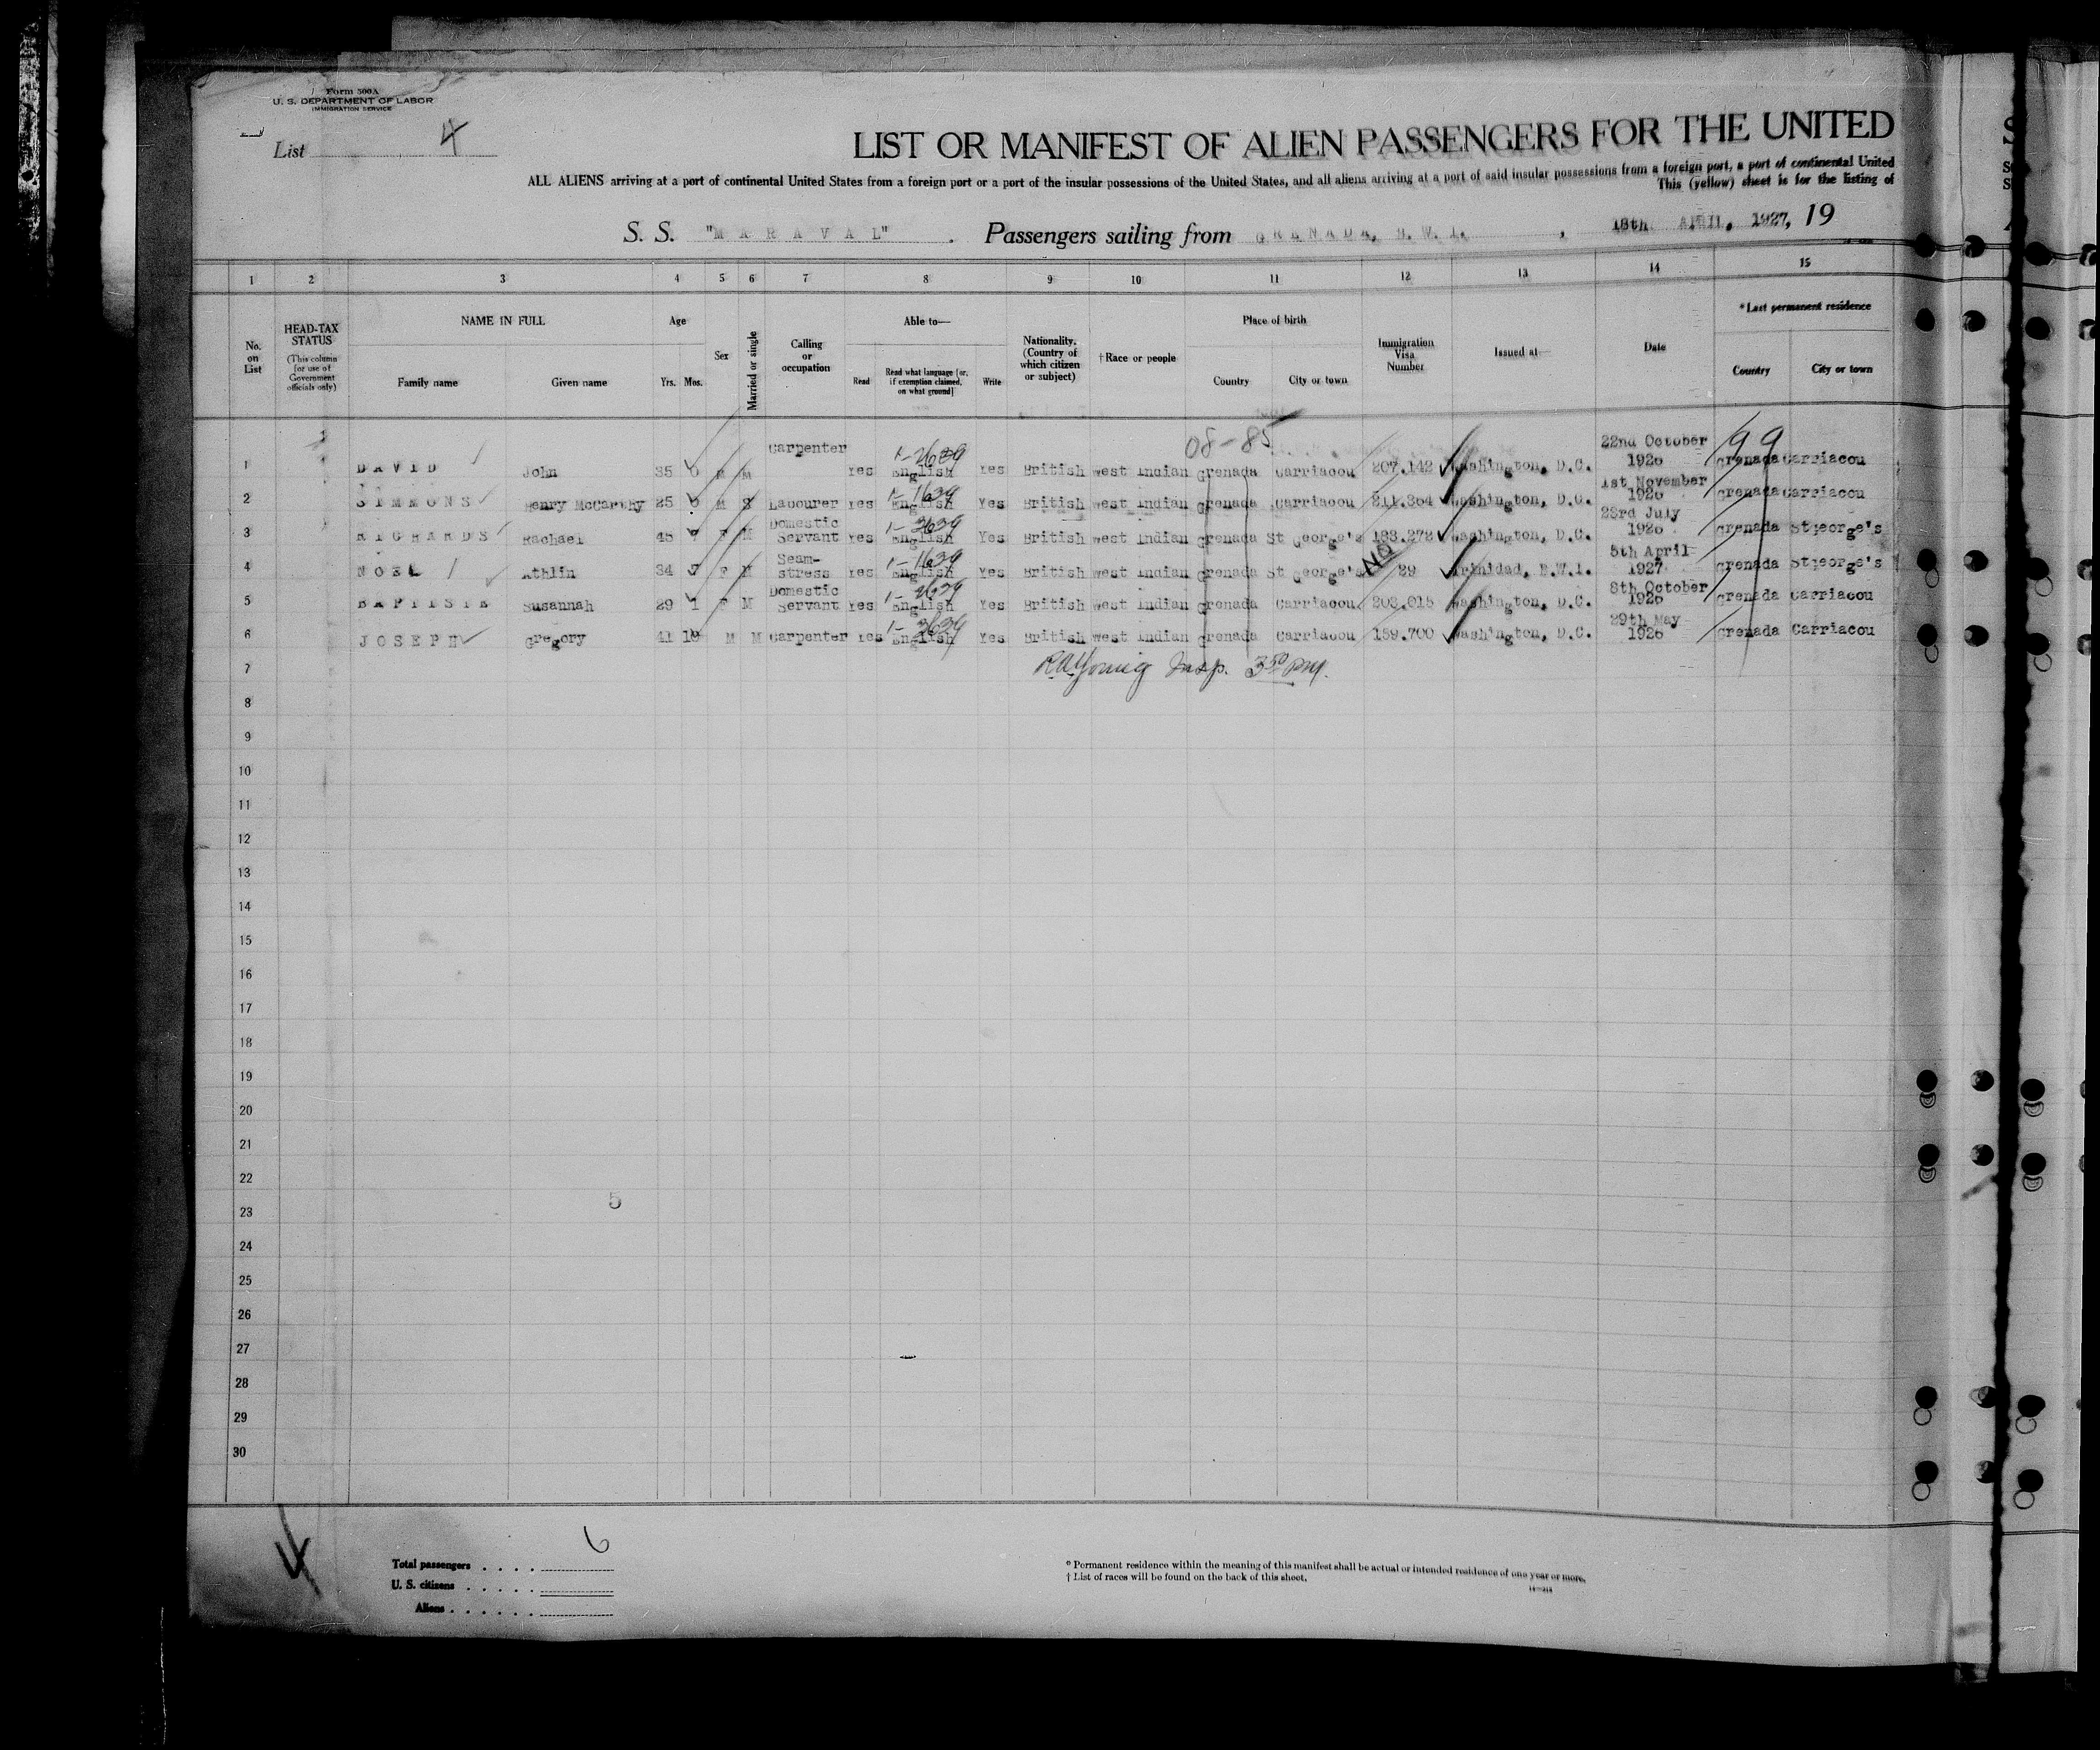 Form 500A
U. S. DEPARTMENT OF LABOR
IMMIGRATION SERVICE
List 4
LIST OR MANIFEST OF ALIEN PASSENGERS FOR THE UNITED
ALL ALIENS arriving at a port of continental United States from a foreign port or a port of the insular possessions of the United States, and all aliens arriving at a port of said insular possessions from a foreign port, a port of continental United
This (yellow) sheet is for the listing of
S. S. "MARAVAL" . Passengers sailing from GRENADA, B. W. I. , 18th APRIL, 1927, 19
1 2 3 4 5 6 7 8 9 10 11 12 13 14 15
No. on List
HEAD-TAX STATUS
(This column for use of Government officials only)
NAME IN FULL
Family name Given name
Age
Yrs. Mos.
Sex
Married or single
Calling or occupation
Able to—
Read
Read what language [or, if exemption claimed, on what ground]
Write
Nationality. (Country of which citizen or subject)
†Race or people
Place of birth
Country City or town
Immigration Visa Number
Issued at—
Date
*Last permanent residence
Country City or town
08-85
99
1 DAVID John 35 M M Carpenter Yes English Yes British West Indian Grenada Carriacou 207.142 Washington, D.C. 22nd October 1926 Grenada Carriacou
2 SIMMONS Henry McCarthy 25 M S Labourer Yes English Yes British West Indian Grenada Carriacou 211.364 Washington, D.C. 1st November 1926 Grenada Carriacou
3 RICHARDS Rachael 45 F M Domestic Servant Yes English Yes British West Indian Grenada St George's 183.272 Washington, D.C. 23rd July 1926 Grenada St George's
4 NOEL Athlin 34 F M Seam-stress Yes English Yes British West Indian Grenada St George's NQ 29 Trinidad, B.W.I. 5th April 1927 Grenada St George's
5 BAPTISTE Susannah 29 1 F M Domestic Servant Yes English Yes British West Indian Grenada Carriacou 203.015 Washington, D.C. 8th October 1926 Grenada Carriacou
6 JOSEPH Gregory 41 10 M M Carpenter Yes English Yes British West Indian Grenada Carriacou 159.700 Washington, D.C. 29th May 1926 Grenada Carriacou
7 R.A. Young Insp. 3 50 PM.
8
9
10
11
12
13
14
15
16
17
18
19
20
21
22
5
23
24
25
26
27
28
29
30
4
6
Total passengers
U. S. citizens
Aliens
* Permanent residence within the meaning of this manifest shall be actual or intended residence of one year or more.
† List of races will be found on the back of this sheet.